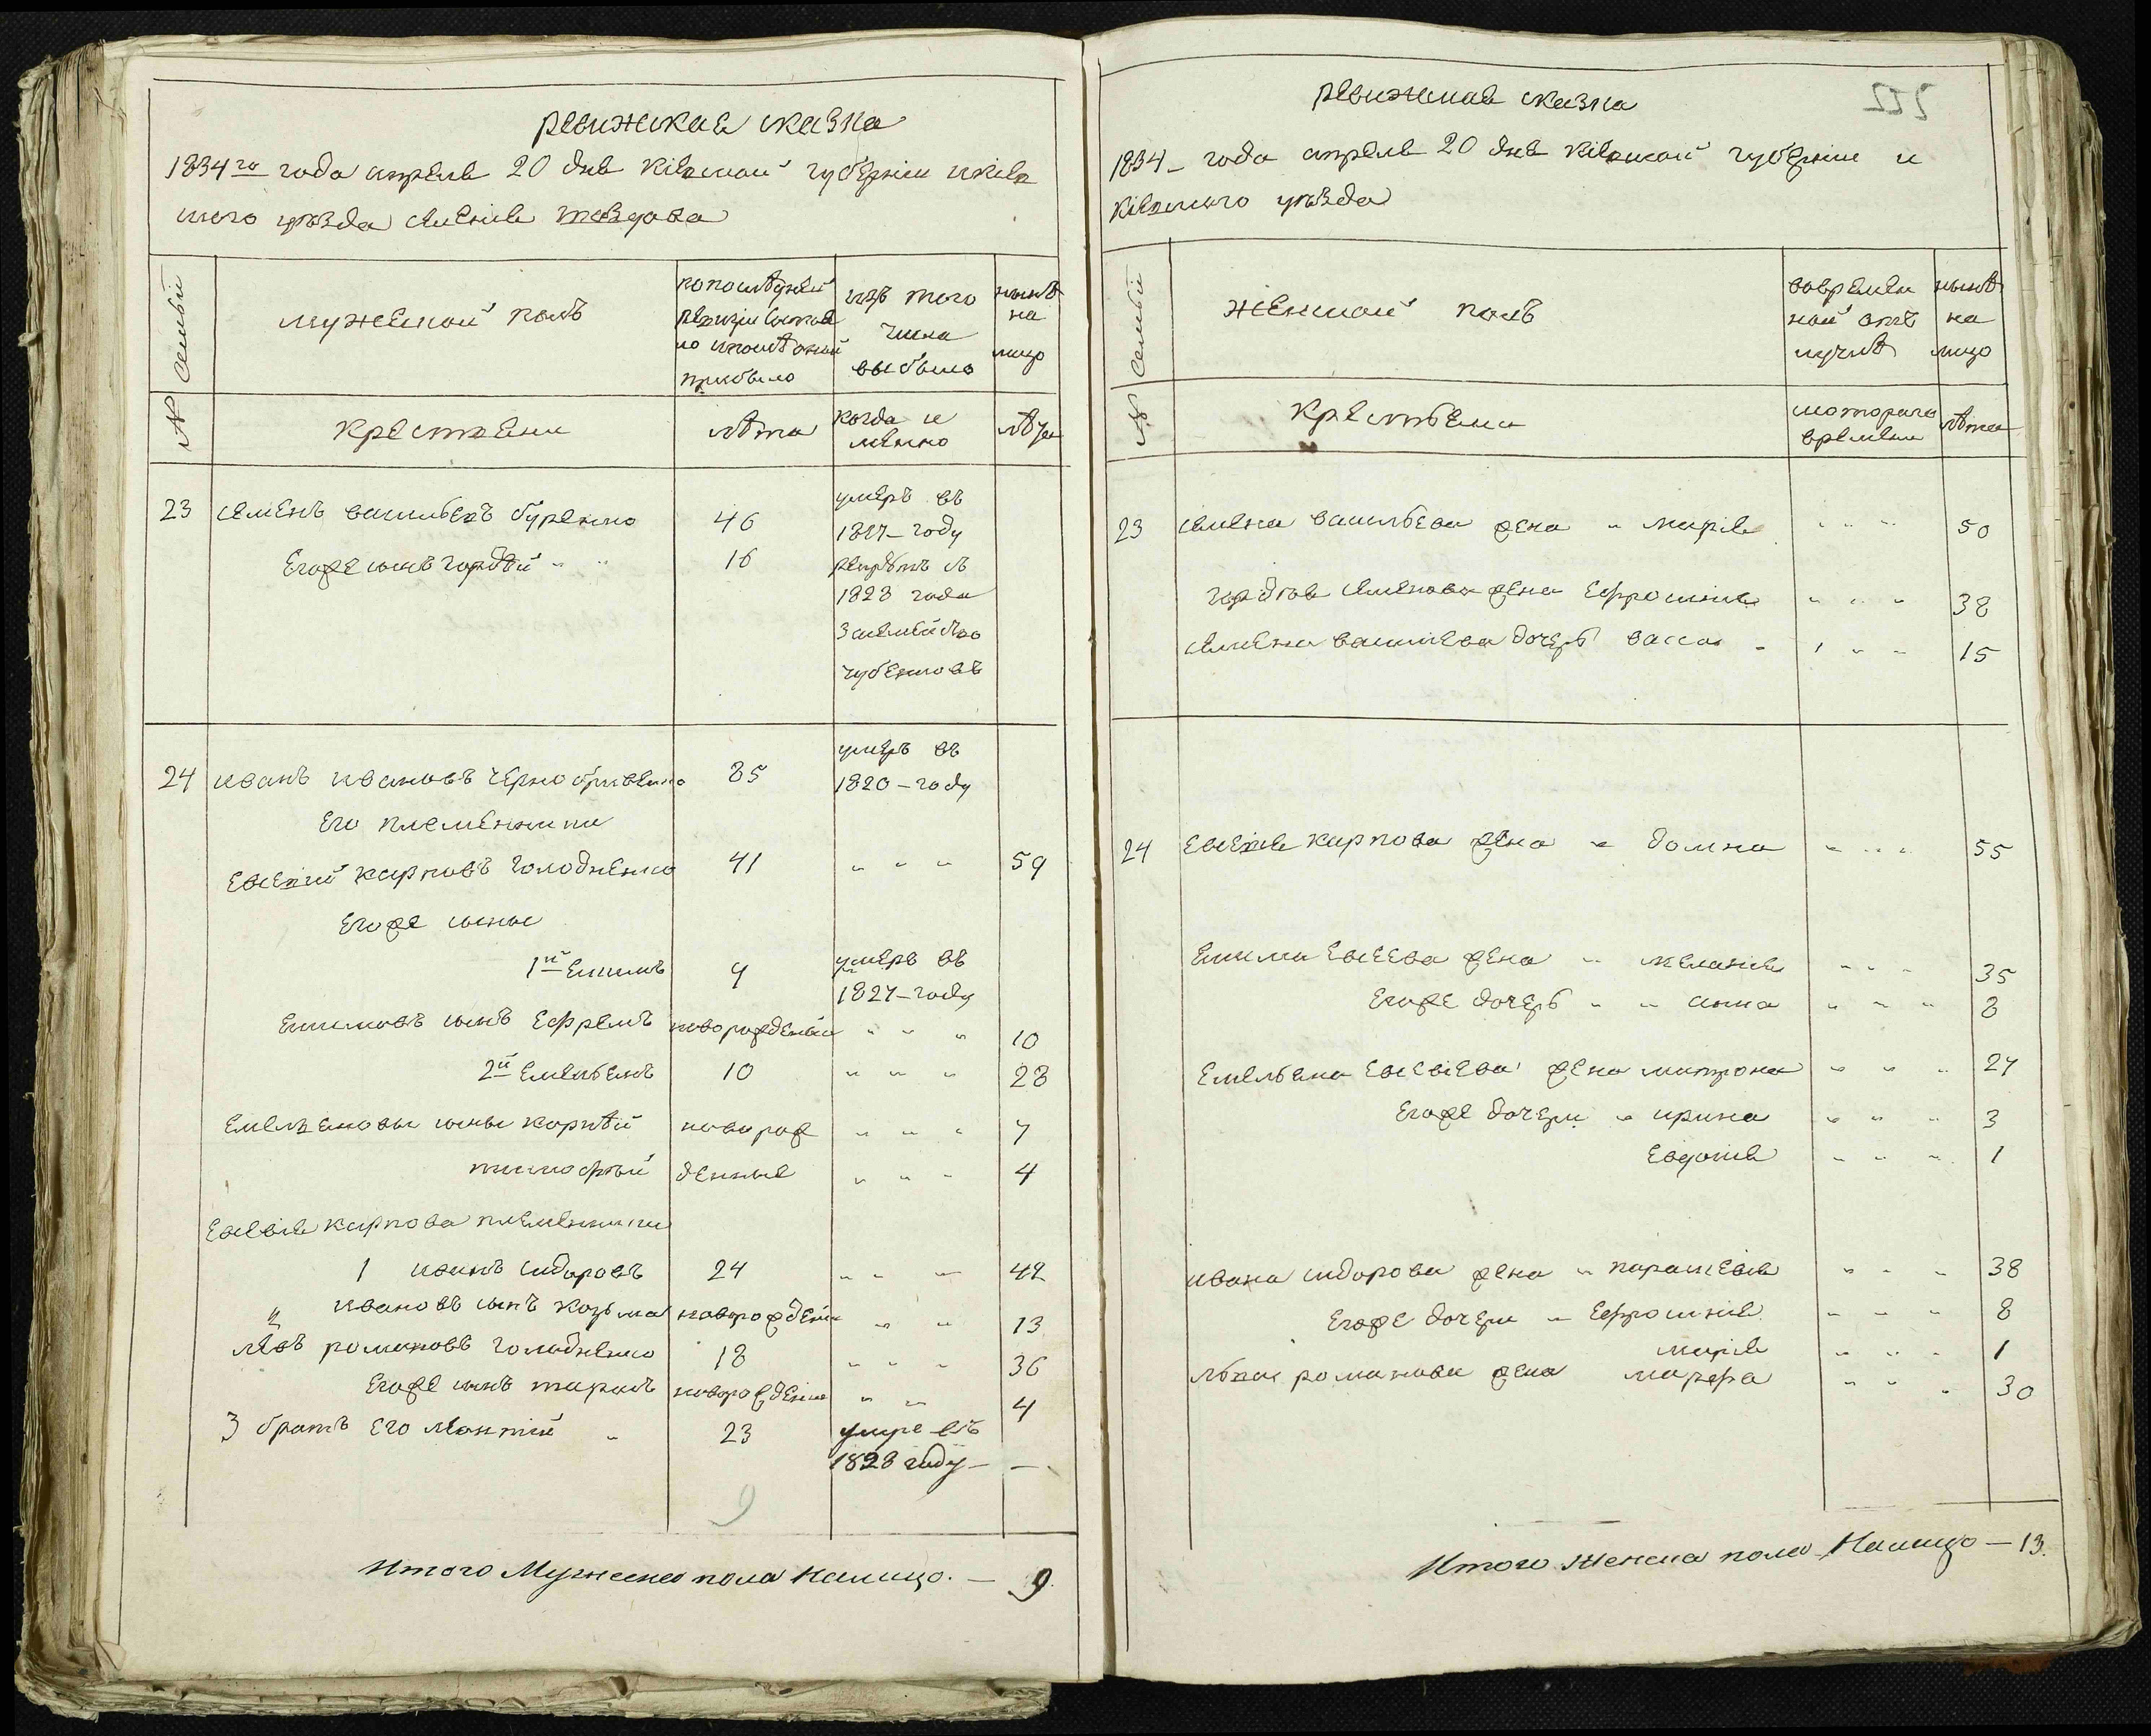 ревижская сказка
1834го года апреля 20 дня Кіевской губерніи и Кіев
ского уезда селенія
семьи
мужеской полъ
по последней
ревизіи состоя
ло и после оной
прибыло
изъ того
числа
выбыло
ныне
на
лицо
№
крестьяни
лѣта
когда и
менно
лѣта
23 семенъ васильевъ буренко 46 умеръ въ
1817 - году
Егоже сынъ гордѣй " " 16 рекрутъ съ
1828 года
24 иванъ ивановъ чернобривенко 85 умеръ въ
1820 - году
Его племенники
Евсевій карповъ голодненко 41 " " " 59
Егоже сыны
1й Екимъ 9 умеръ въ
1827 - году
Екимовъ сынъ Ефремъ новорожденый " " " 10
2й Емельянъ 10 " " " 28
Емельяновы сыны корнѣй новорож " " " 7
тимофѣй денные " " " 4
Евсевія карпова племенники
1 иванъ сидоровъ 24 " " — 42
ивановъ сынъ козьма новорожден " " 13
2 левъ романовъ голодненко 18 " " " 36
Егоже сынъ тарасъ новорожден " " 4
3 братъ Его 23 умре въ
1828 году — — .
9
Итого Мужеска пола Налицо. — 9.
ревижская сказка
1834 - года апреля 20 дня Кіевской губерніи и
Кіевского уезда
семьи
женской полъ
вовремен
ной отъ
лучкѣ
нынѣ
на
лицо
№
Крестьяни
скоторого
времени
лѣта
23 семена васильева жена " марія " " " 50
гордѣя семенова жена Ефросинія " " " 38
семена васильева дочерь васса " " " 15
24 Евсевія карпова жена " домна " " " 55
Екима Евсеева жена " меланія " " " 35
Егоже дочерь " " анна " " " 8
Емельяна Евсевіева жена матрона " " " 27
Егоже дочери " ирина " " " 3
Евдокія " " " 1
ивана сидорова жена " параскевія " " " 38
Егоже дочери " Ефросинія " " " 8
марія " " " 1
льва романова жена марфа " " " 30
Итого Женска пола Налицо — 13.